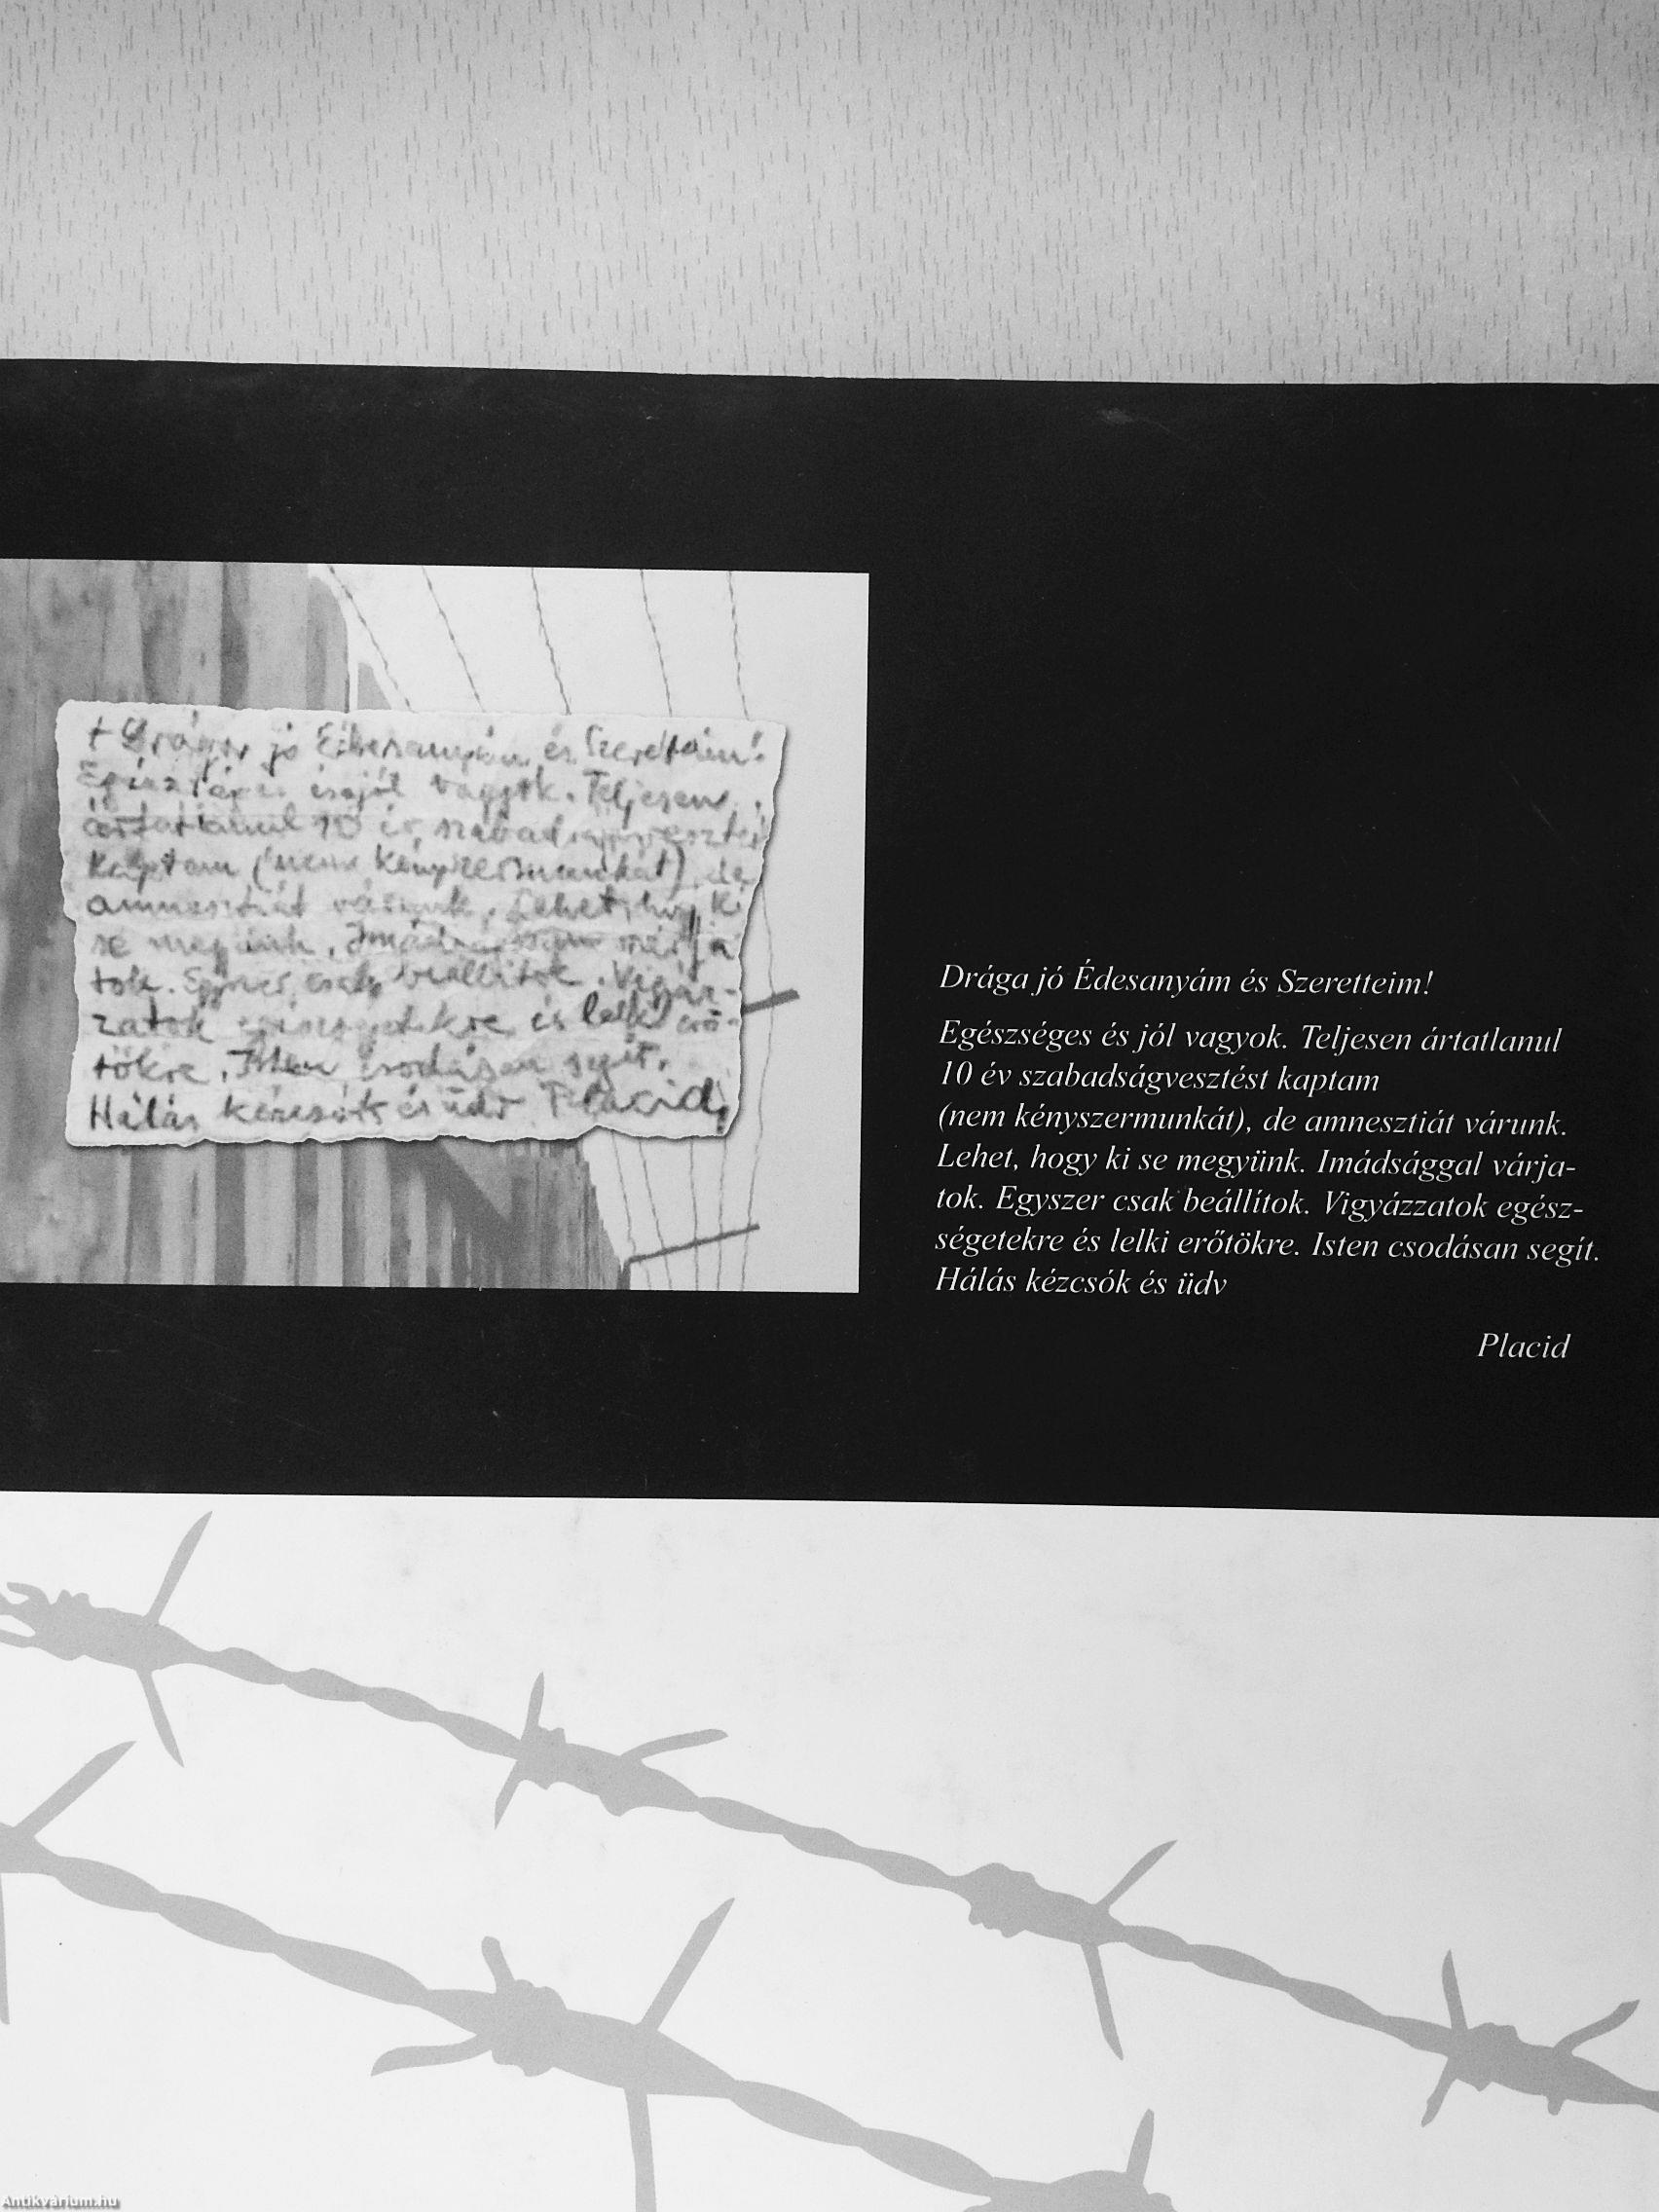 + Drága jó Édesanyám és Szeretteim!
Egészséges és jól vagyok. Teljesen
ártatlanul 10 év szabadságvesztést
kaptam (nem kényszermunkát), de
amnesztiát várunk. Lehet, hogy ki
se megyünk. Imádsággal várja
tok. Egyszer csak beállítok. Vigyáz-
zatok egészségetekre és lelki erő-
tökre. Isten csodásan segít.
Hálás kézcsók és üdv Placid
Drága jó Édesanyám és Szeretteim!
Egészséges és jól vagyok. Teljesen ártatlanul
10 év szabadságvesztést kaptam
(nem kényszermunkát), de amnesztiát várunk.
Lehet, hogy ki se megyünk. Imádsággal várja-
tok. Egyszer csak beállítok. Vigyázzatok egész-
ségetekre és lelki erőtökre. Isten csodásan segít.
Hálás kézcsók és üdv
Placid
Antikvárium.hu